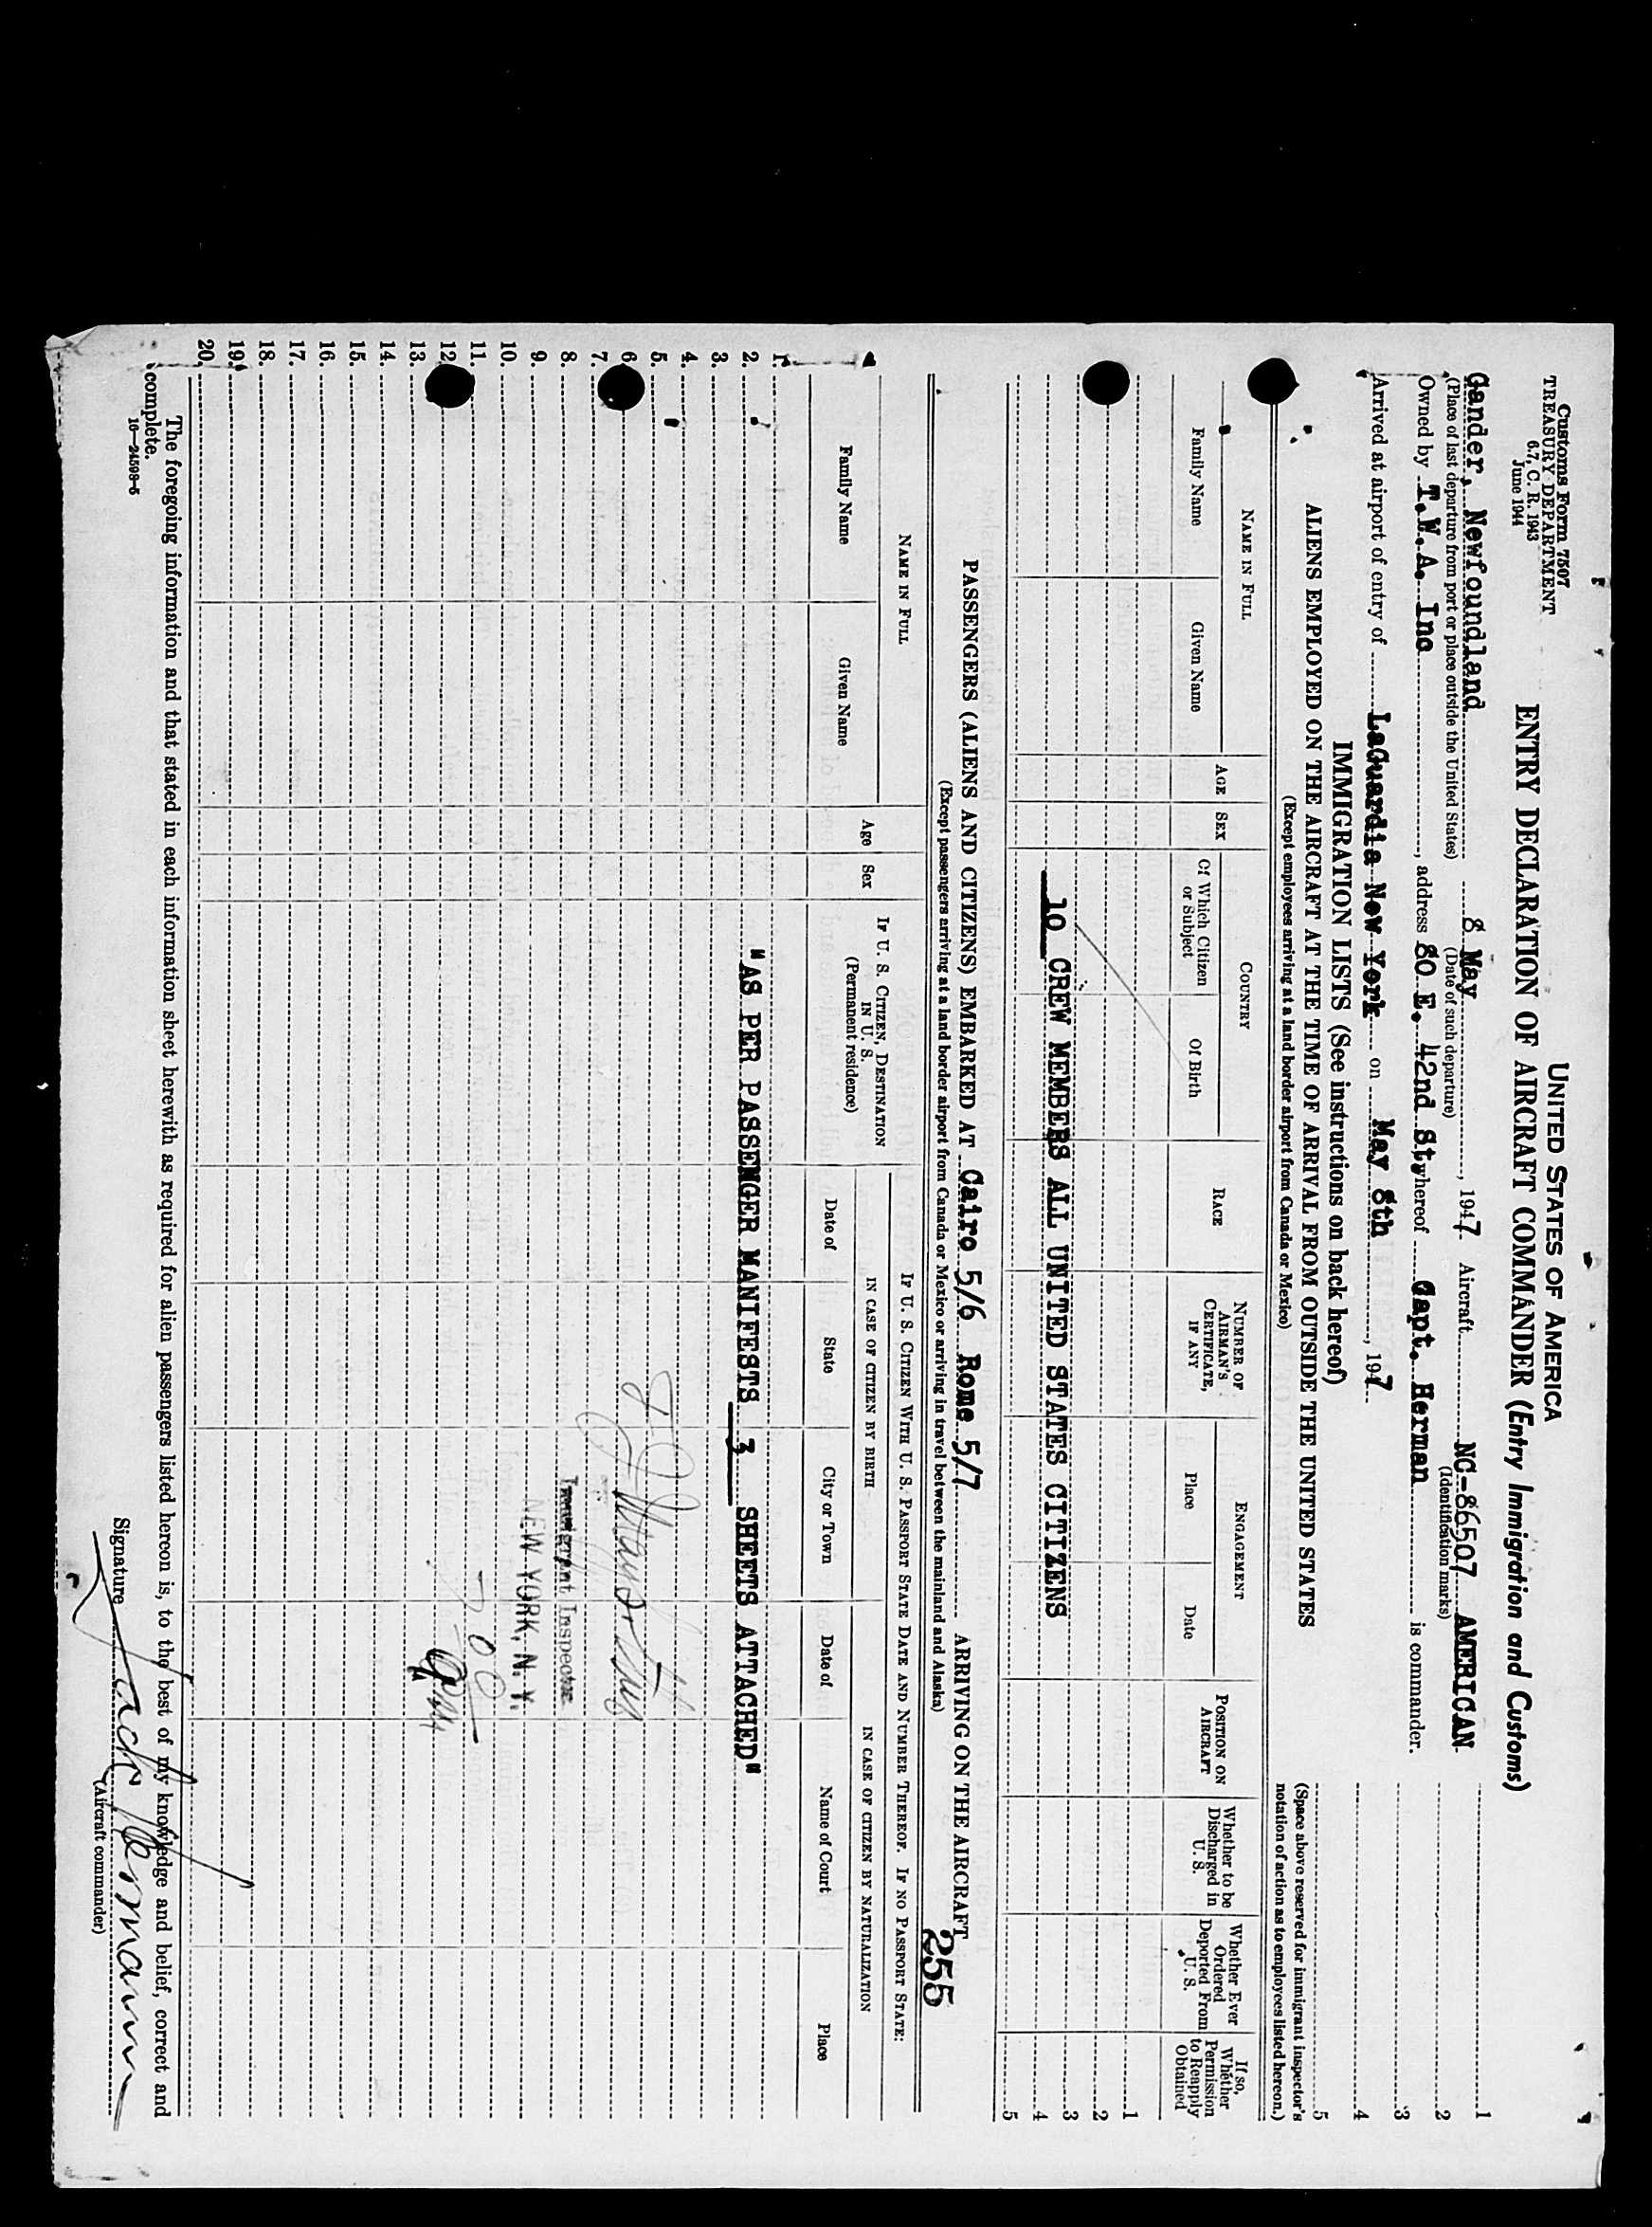 Customs Form 7507
TREASURY DEPARTMENT
6.7, C. R. 1943
June 1944
UNITED STATES OF AMERICA
ENTRY DECLARATION OF AIRCRAFT COMMANDER (Entry Immigration and Customs)
Gander, Newfoundland 8 May, 1947 Aircraft NC-86507 AMERICAN
(Place of last departure from port or place outside the United States) (Date of such departure) (Identification marks)
Owned by T.W.A. Inc, address 80 E. 42nd St, whereof Capt. Herman is commander.
Arrived at airport of entry of LaGuardia New York on May 8th, 1947
1
2
3
4
5
(Space above reserved for immigrant inspector's
notation of action as to employees listed hereon.)
IMMIGRATION LISTS (See instructions on back hereof)
ALIENS EMPLOYED ON THE AIRCRAFT AT THE TIME OF ARRIVAL FROM OUTSIDE THE UNITED STATES
(Except employees arriving at a land border airport from Canada or Mexico)
NAME IN FULL
Family Name
Given Name
AGE
SEX
COUNTRY
Of Which Citizen or Subject
Of Birth
RACE
NUMBER OF AIRMAN'S CERTIFICATE, IF ANY
ENGAGEMENT
Place
Date
POSITION ON AIRCRAFT
Whether to be Discharged in U. S.
Whether Ever Ordered Deported From U. S.
If so, Whether Permission to Reapply Obtained
1
2
3
10 CREW MEMBERS ALL UNITED STATES CITIZENS
4
5
PASSENGERS (ALIENS AND CITIZENS) EMBARKED AT Cairo 5/6 Rome 5/7 ARRIVING ON THE AIRCRAFT
255
(Except passengers arriving at a land border airport from Canada or Mexico or arriving in travel between the mainland and Alaska)
NAME IN FULL
Family Name
Given Name
Age
Sex
IF U. S. CITIZEN, DESTINATION IN U. S.
(Permanent residence)
IF U. S. CITIZEN WITH U. S. PASSPORT STATE DATE AND NUMBER THEREOF. IF NO PASSPORT STATE:
IN CASE OF CITIZEN BY BIRTH
IN CASE OF CITIZEN BY NATURALIZATION
Date of
State
City or Town
Date of
Name of Court
Place
1.
2.
"AS PER PASSENGER MANIFESTS 3 SHEETS ATTACHED"
3.
4.
5.
6.
7.
8.
Immigrant Inspector
9.
NEW YORK, N. Y.
10.
11.
12.
13.
14.
15.
16.
17.
18.
19.
20.
The foregoing information and that stated in each information sheet herewith as required for alien passengers listed hereon is, to the best of my knowledge and belief, correct and
complete.
16—24598-5
Signature Jack Hermann
(Aircraft commander)